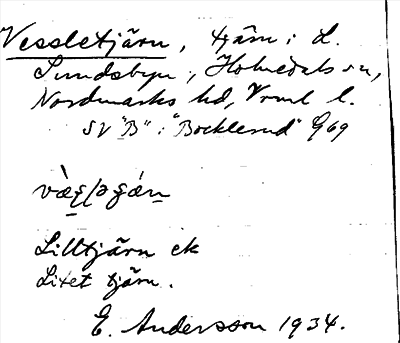 Vessletjärn, tjärn i L.
Sundsbyn, Holmedals sn,
Nordmarks hd, Vrml l.
SV "B" i "Bocklerud" G69
Lilltjärn ek
Litet tjärn.
E. Andersson 1934.